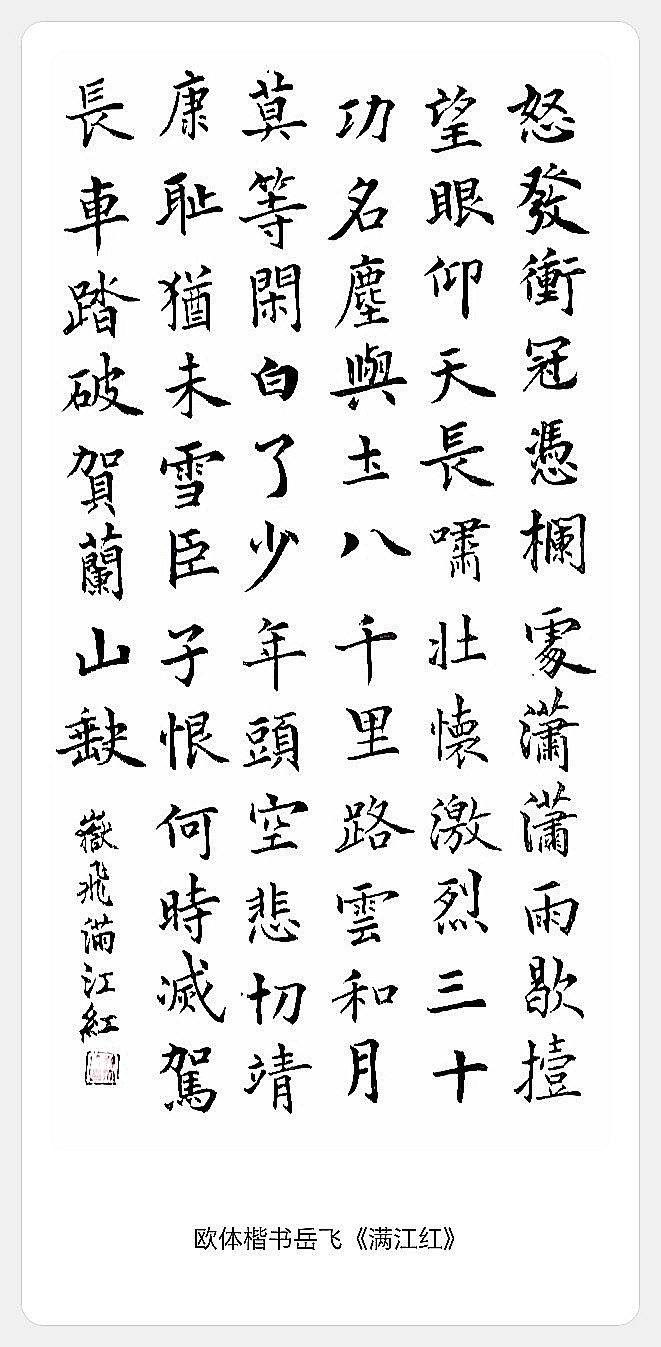 怒發衝冠憑欄處瀟瀟雨歇擡
望眼仰天長嘯壯懷激烈三十
功名塵與土八千里路雲和月
莫等閑白了少年頭空悲切靖
康耻猶未雪臣子恨何時滅駕
長車踏破賀蘭山缺
嶽飛滿江紅
欧体楷书岳飞《满江红》